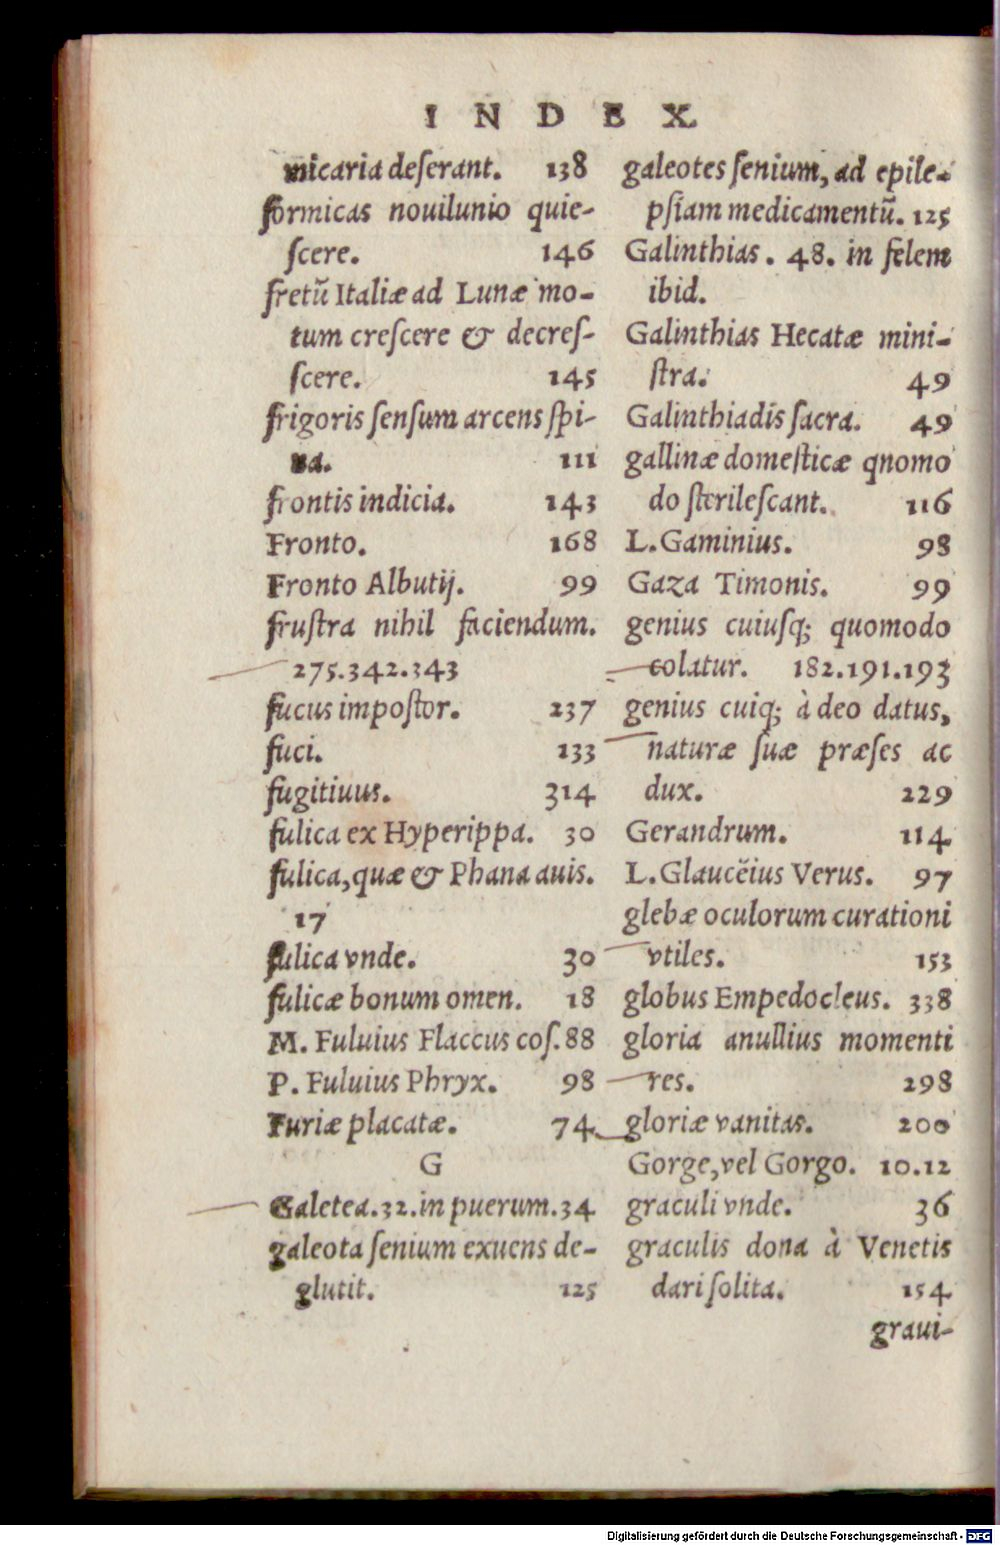 INDEX
micaria deſerant. 138
formicas nouilunio quie-
ſcere. 146
fretũ Italiæ ad Lunæ mo-
tum creſcere & decreſ-
ſcere. 145
frigoris ſenſum arcens ſpi-
na. 111
frontis indicia. 143
Fronto. 168
Fronto Albutij. 99
fruſtra nihil faciendum.
275.342.343
fucus impoſtor. 237
fuci. 133
fugitiuus. 314
fulica ex Hyperippa. 30
fulica, quæ & Phana auis.
17
fulica vnde. 30
fulicæ bonum omen. 18
M. Fuluius Flaccus coſ. 88
P. Fuluius Phryx. 98
Furiæ placatæ. 74
G
Galetea. 32. in puerum. 34
galeota ſenium exuens de-
glutit. 125
galeotes ſenium, ad epile-
pſiam medicamentũ. 125
Galinthias. 48. in felem
ibid.
Galinthias Hecatæ mini-
ſtra. 49
Galinthiadis ſacra. 49
gallinæ domeſticæ qnomo
do ſterileſcant. 116
L. Gaminius. 98
Gaza Timonis. 99
genius cuiuſq; quomodo
colatur. 182.191.193
genius cuiq; à deo datus,
naturæ ſuæ præſes ac
dux. 229
Gerandrum. 114
L. Glaucẽius Verus. 97
glebæ oculorum curationi
vtiles. 153
globus Empedocleus. 338
gloria anullius momenti
res. 298
gloriæ vanitas. 200
Gorge, vel Gorgo. 10.12
graculi vnde. 36
graculis dona à Venetis
dari ſolita. 154
graui-
Digitalisierung gefördert durch die Deutsche Forschungsgemeinschaft - DFG